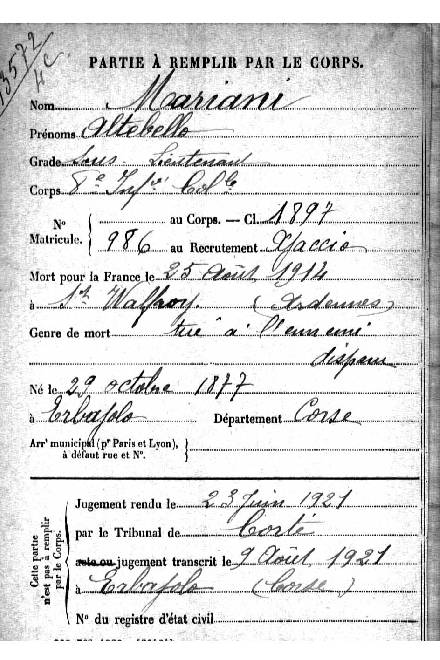 13572
PARTIE À REMPLIR PAR LE CORPS.
Nom Mariani
Prénoms Altobello
Grade Sous Lieutenant
Corps 8e Infie Colle
No Matricule. { au Corps. — Cl. 1897
986 au Recrutement Ajaccio
Mort pour la France le 25 Août 1914
à St Walfroy. (Ardennes)
Genre de mort tué à l'ennemi
disparu
Né le 29 octobre 1877
à Erbajolo Département Corse
Arrt municipal (pr Paris et Lyon), à défaut rue et No. }
Cette partie n'est pas à remplir par le Corps. {
Jugement rendu le 23 Juin 1921
par le Tribunal de Corte
acte ou jugement transcrit le 9 Août 1921
à Erbajolo (Corse)
No du registre d'état civil